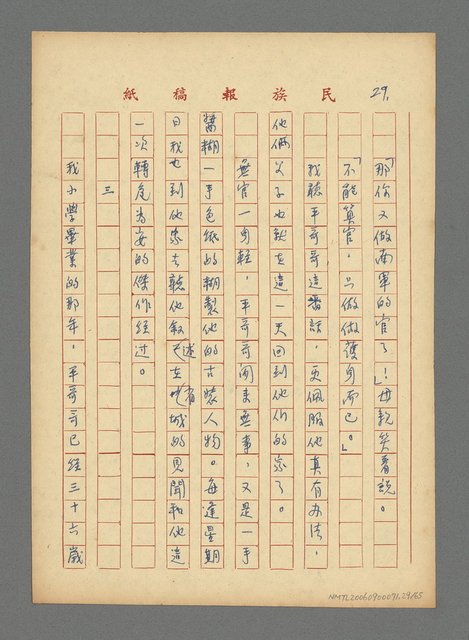 民族報稿紙
29.
「那你又做兩軍的官了！」母親笑着說。
「不能算官，只做做護身而已。」
我聽平哥哥這番話，更佩服他真有办法，
他倆父子也就在這一天回到他們的家了。
無官一身輕，平哥哥閒來無事，又是一手
醬糊一手色紙的糊製他的古裝人物。每逢星期
日我也到他家去聽他敘述在省城的見聞和他這
一次轉危為安的傑作經过。
三
我小學畢業的那年，平哥哥已經三十六歲
NMTL20060900071.29/65